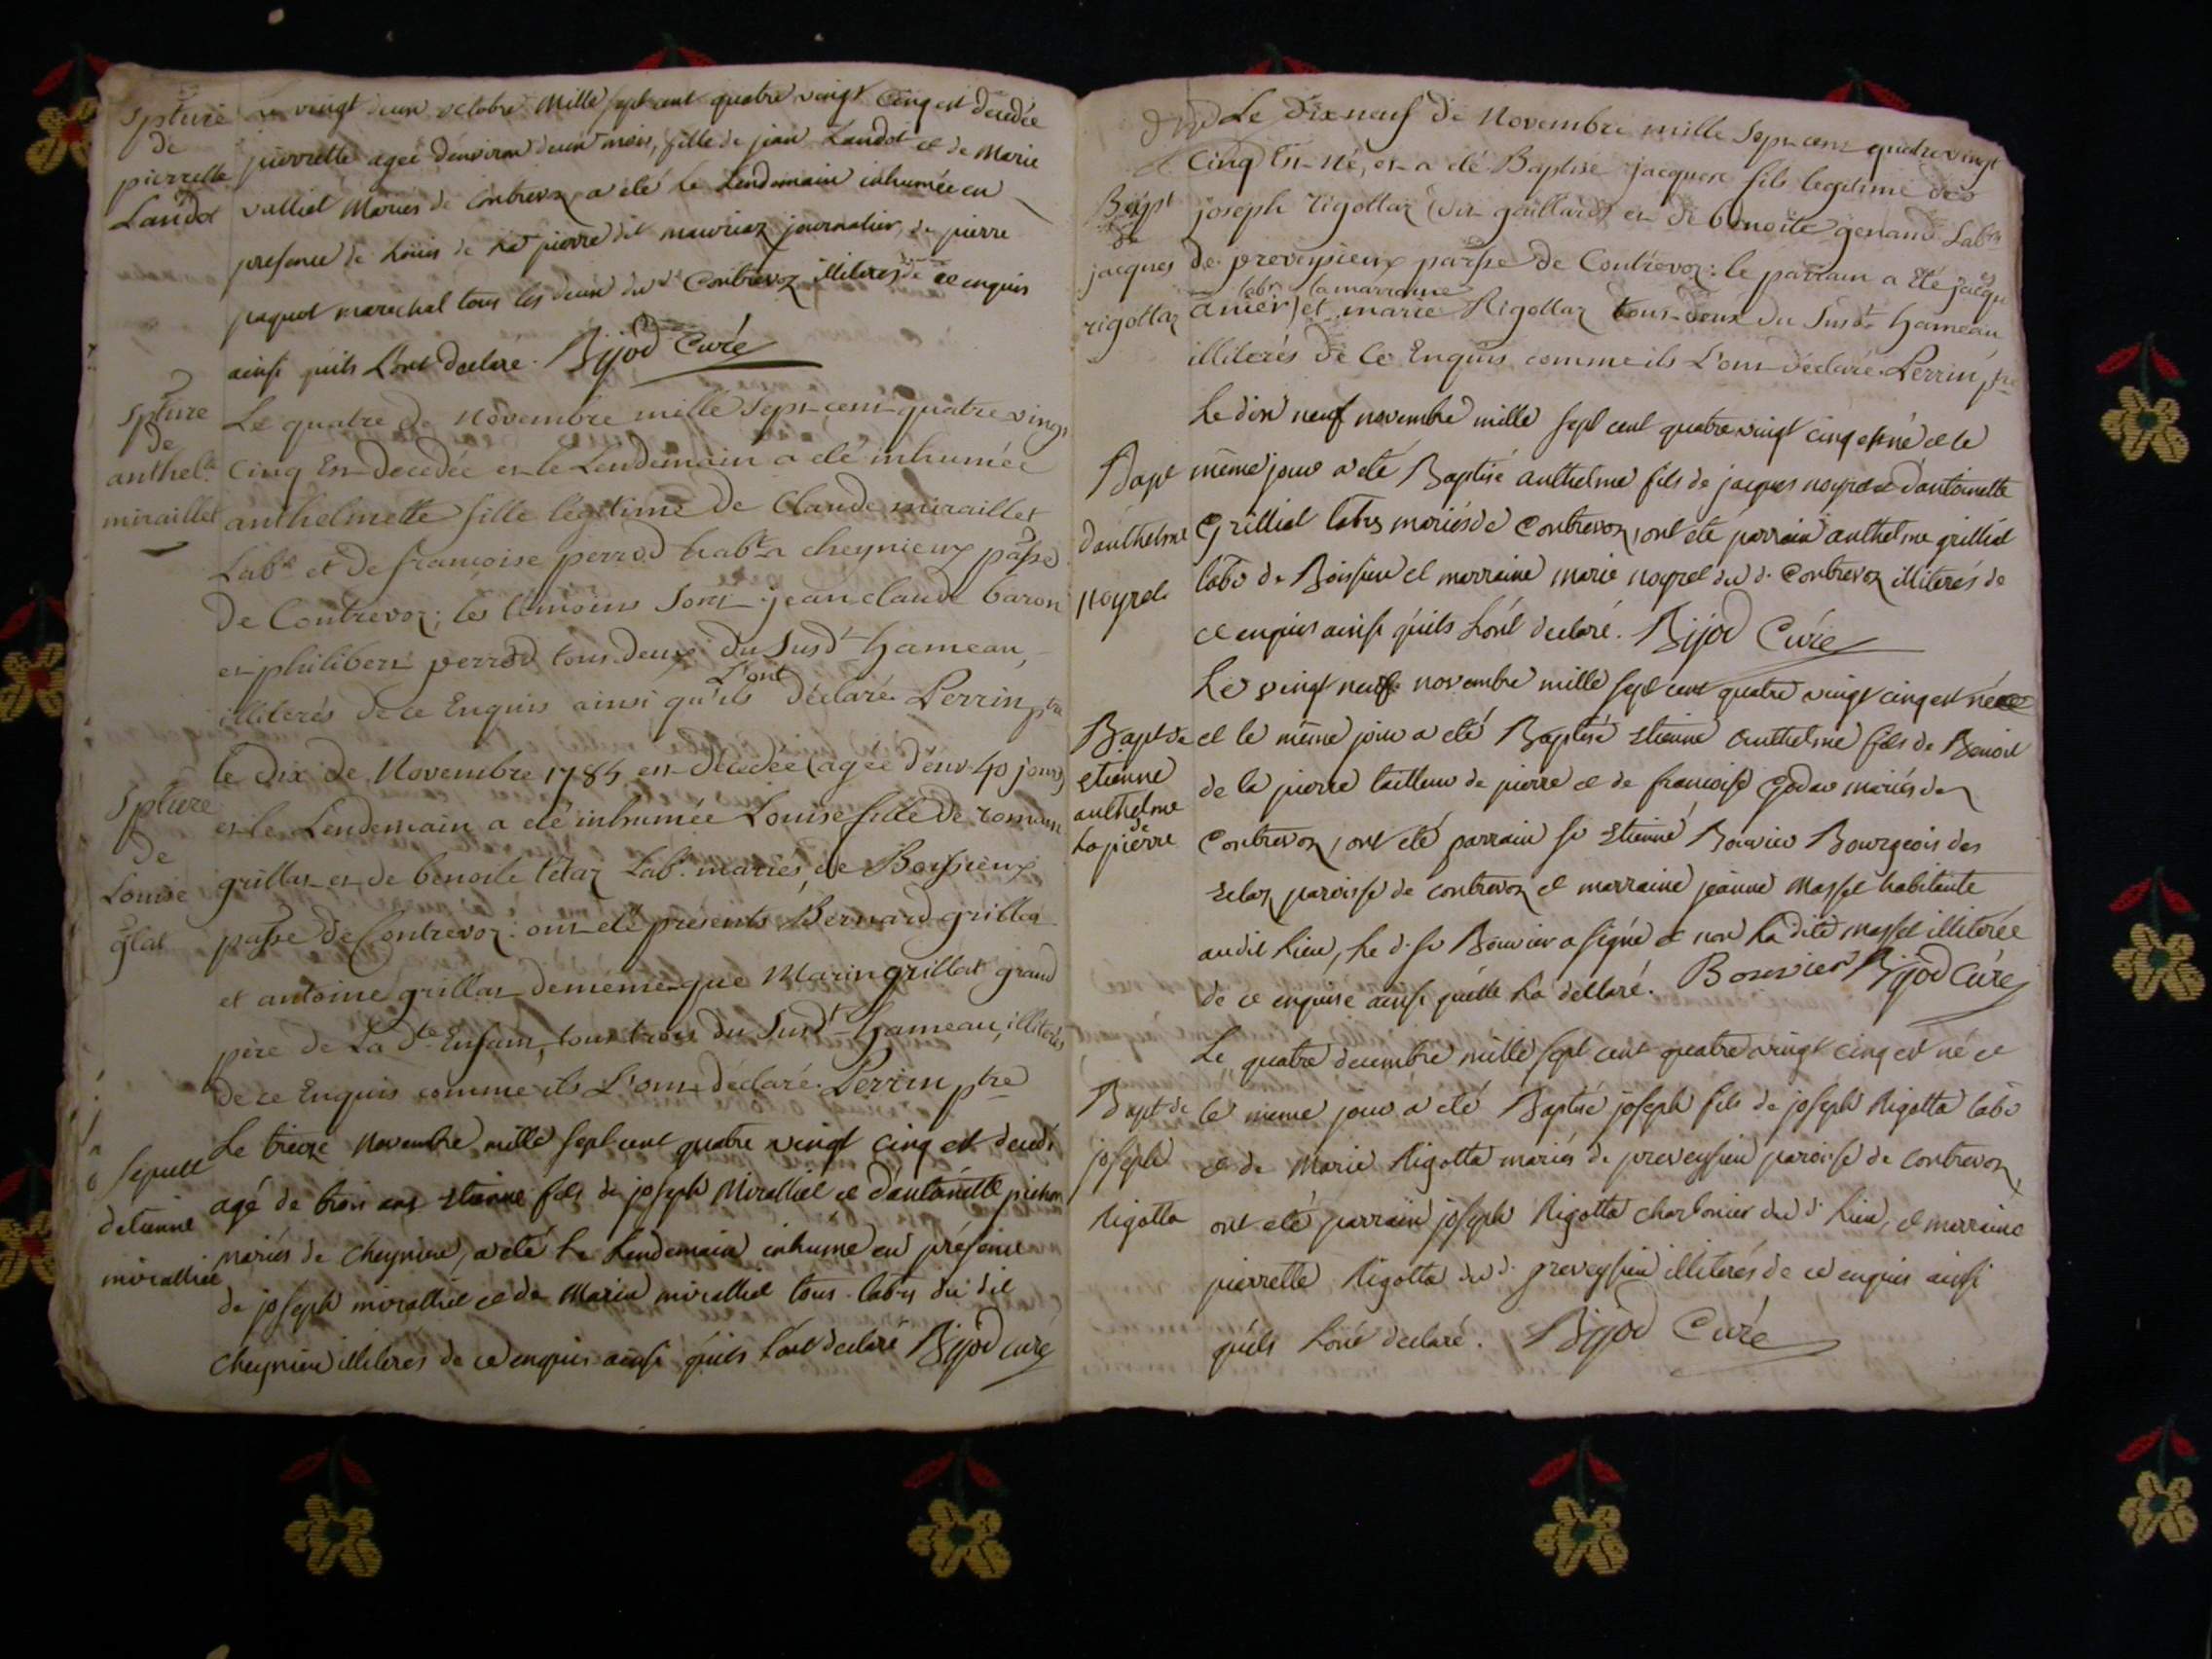 Spture
de
pierrette
Landot
Le vingt deux octobre Mille sept cent quatre vingt Cinq est decedée
pierrette agée denviron deux mois, fille de jean Landot et de Marie
valliet Mariés de Contrevoz, a eté le Lendemain inhumée en
presence de Louis de La pierre dit mauriaz journalier, de pierre
paquet marechal tous les deux du dt Contrevoz illiterés de ce enquis
ainsi quils Lont declaré. Bijod Curé
Spture
de
anthel.te
miraillet
Le quatre de Novembre mille Sept cent quatre vingt
Cinq Est decedée et le Lendemain a eté inhumée
anthelmette fille légitime de Claude miraillet
Labr et de françoise perrod habt a cheynieux passe
de Contrevoz; les témoins Sont jean claude baron
et philibert perrod tous deux du Susdt hameau,
illiterés de ce Enquis ainsi qu'ils L'ont déclaré Perrin ptre
Spture
de
Louise
glat
le dix de Novembre 1785 est decedée (agée d'env. 40 jours)
et le Lendemain a eté inhumée Louise fille de romain
grillat et de benoite létaz Labr. mariés, de Boissieux
passe de Contrevoz: ont eté présents Bernard grillat
et antoine grillat demême que Marin grillat grand
père de La dte Enfant, tous trois du Susdt hameau, illiterés
de ce Enquis comme ils L'ont déclaré. Perrin ptre
Sepult
detienne
miralliet
Le treize Novembre mille sept cent quatre vingt cinq est decedé
agé de trois ans Etienne fils de joseph Miralliet et dantoinette pichon
mariés de Cheynieu, a eté Le Lendemain inhumé en présence
de joseph miralliet et de Marin miralliet tous labrs du dit
Cheynieu illiterés de ce enquis ainsi quils Lont declaré Bijod curé
Bapt
de
jacques
rigottaz
Le Dix neuf de Novembre mille Sept cent quatre vingt
Cinq Est né, et a eté Baptisé jacques fils legitime de
joseph rigottaz (dit gaillard) et de benoite genand Labrs
de preveysieux parsse de Contrevoz: le parrain a Eté jacques
anier labr et la marraine marie Rigottaz tous deux du Susdt hameau
illiterés de ce Enquis comme ils L'ont déclaré. Perrin ptre
Bapt
danthelme
noyrel
Le dix neuf novembre mille sept cent quatre vingt cinq est né et le
même jour a eté Baptisé anthelme fils de jacques noyrel et dantoinette
Grilliat labrs mariés de Contrevoz, ont eté parrain anthelme grilliat
labr de Boissieu et marraine marie noyrel du d. Contrevoz illiterés de
ce enquis ainsi quils Lont declaré. Bijod Curé
Bapt de
etienne
anthelme
Lapierre
Le vingt neuf novembre mille sept cent quatre vingt cinq est né
et le même jour a eté Baptisé Etienne Anthelme fils de Benoit
de la pierre tailleur de pierre et de françoise Godar mariés de
Contrevoz, ont eté parrain sr Etienne Bouvier Bourgeois des
Selaz paroisse de contrevoz et marraine jeanne Masset habitante
audit Lieu, Le d. sr Bouvier a signé et non La dite masset illiterée
de ce enquise ainsi quelle La dellaré. Bouvier Bijod Curé
Bapt de
joseph
Rigotta
Le quatre decembre mille sept cent quatre vingt cinq est né et
le meme jour a eté Baptisé joseph fils de joseph Rigotta labr
et de Marie Rigotta mariés de preveyssieu paroisse de contrevoz,
ont eté parrain joseph Rigotta charbonier du d. Lieu, et marraine
pierrette Rigotta du d. preveyssieu illiterés de ce enquis ainsi
quils Lont declaré. Bijod Curé